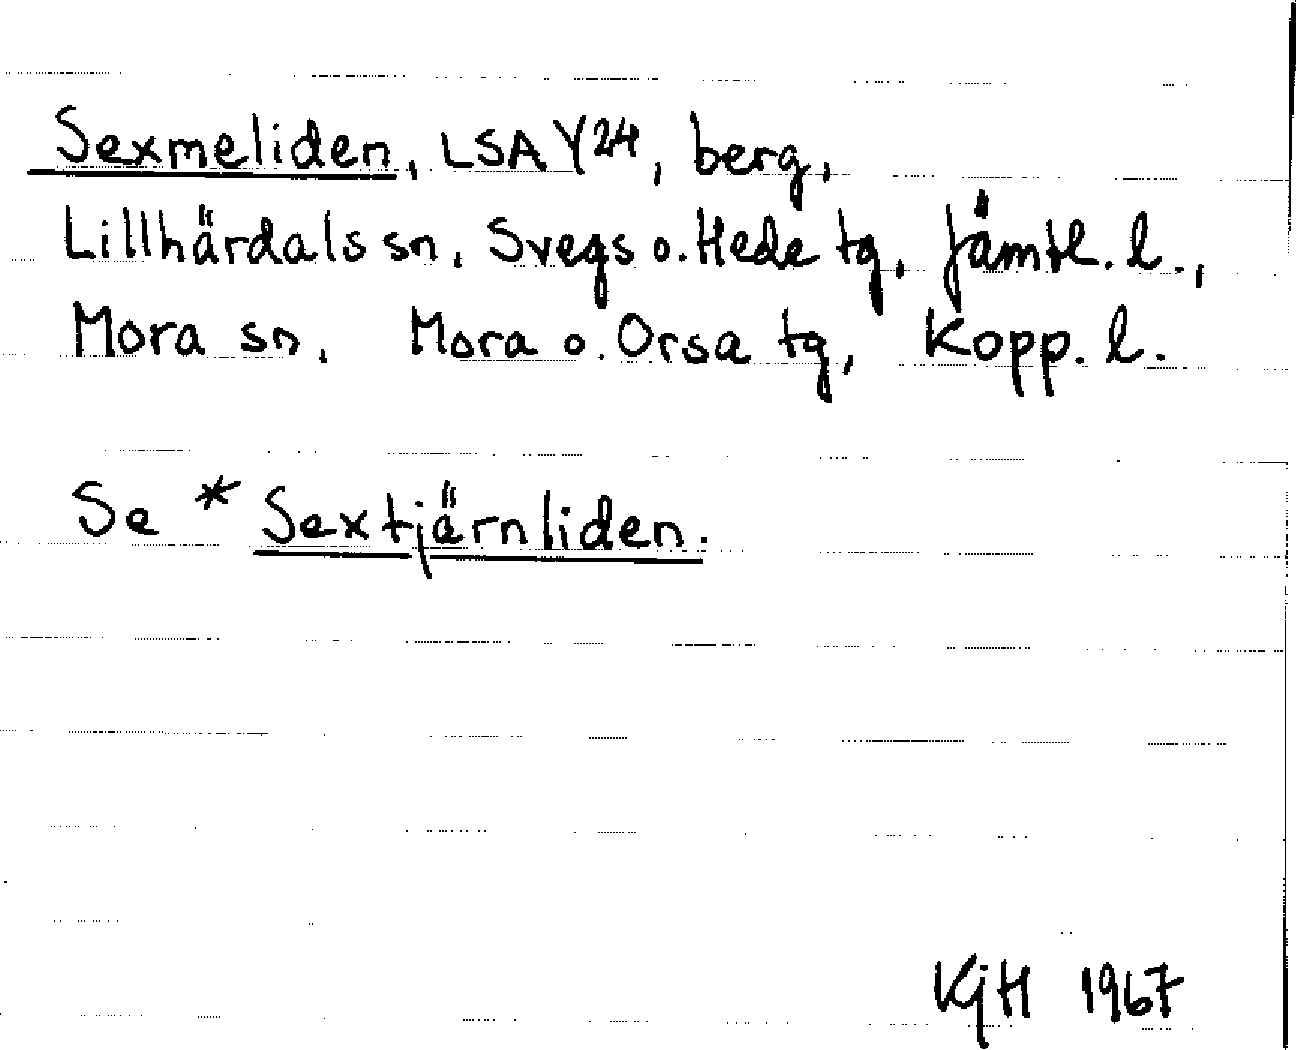 Sexmeliden, LSA Y24, berg,
Lillhärdals sn, Svegs o. Hede tg, Jämtl. l.,
Mora sn, Mora o. Orsa tg, Kopp. l.
Se * Sextjärnliden.
KGH 1967